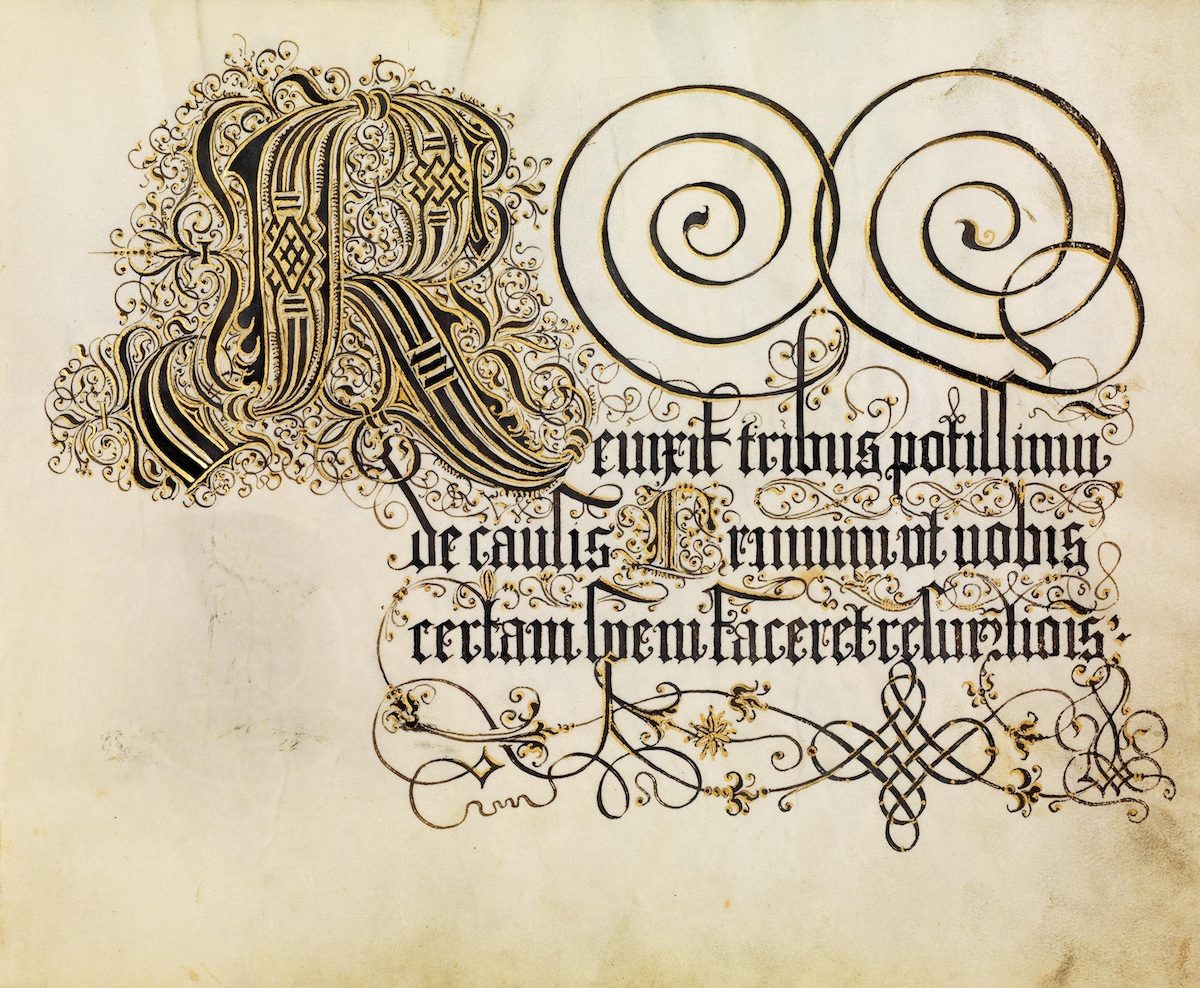 Reuixit tribus potiſſimū
de cauſis Primum ut uobis
certam ſpem faceret reſurr̄tiōis: